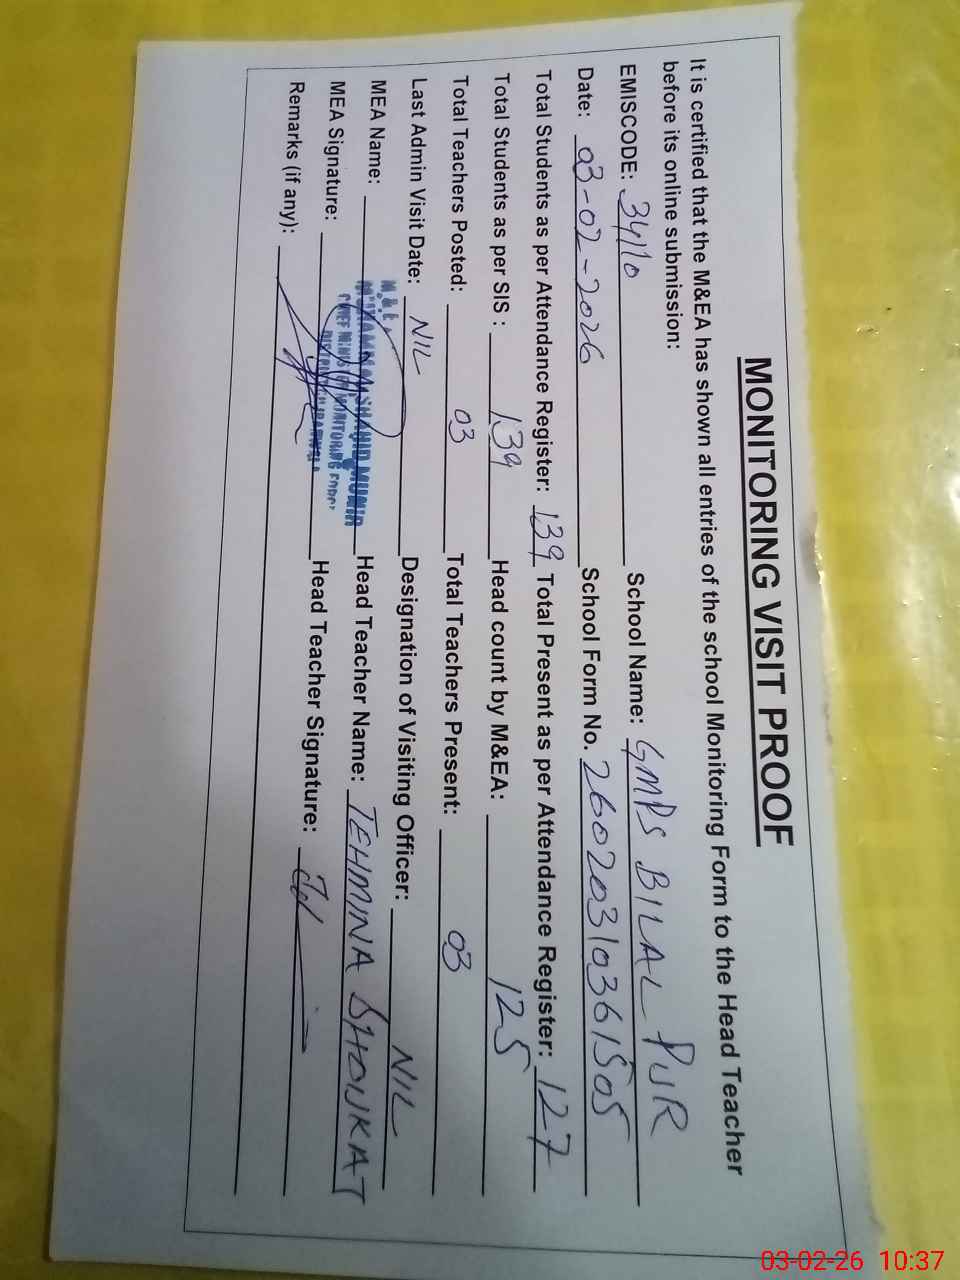 MONITORING VISIT PROOF
It is certified that the M&EA has shown all entries of the school Monitoring Form to the Head Teacher
before its online submission:
EMISCODE: 34110 School Name: GMPS BILAL PUR
Date: 03-02-2026 School Form No. 26020310361505
Total Students as per Attendance Register: 139 Total Present as per Attendance Register: 127
Total Students as per SIS : 139 Head count by M&EA: 125
Total Teachers Posted: 03 Total Teachers Present: 03
Last Admin Visit Date: NIL Designation of Visiting Officer: NIL
MEA Name: MUHAMMAD SHAHID MUNIR Head Teacher Name: TEHMINA SHOUKAT
MEA Signature: CHIEF MINISTER MONITORING FORCE Head Teacher Signature:
Remarks (if any):
03-02-26 10:37